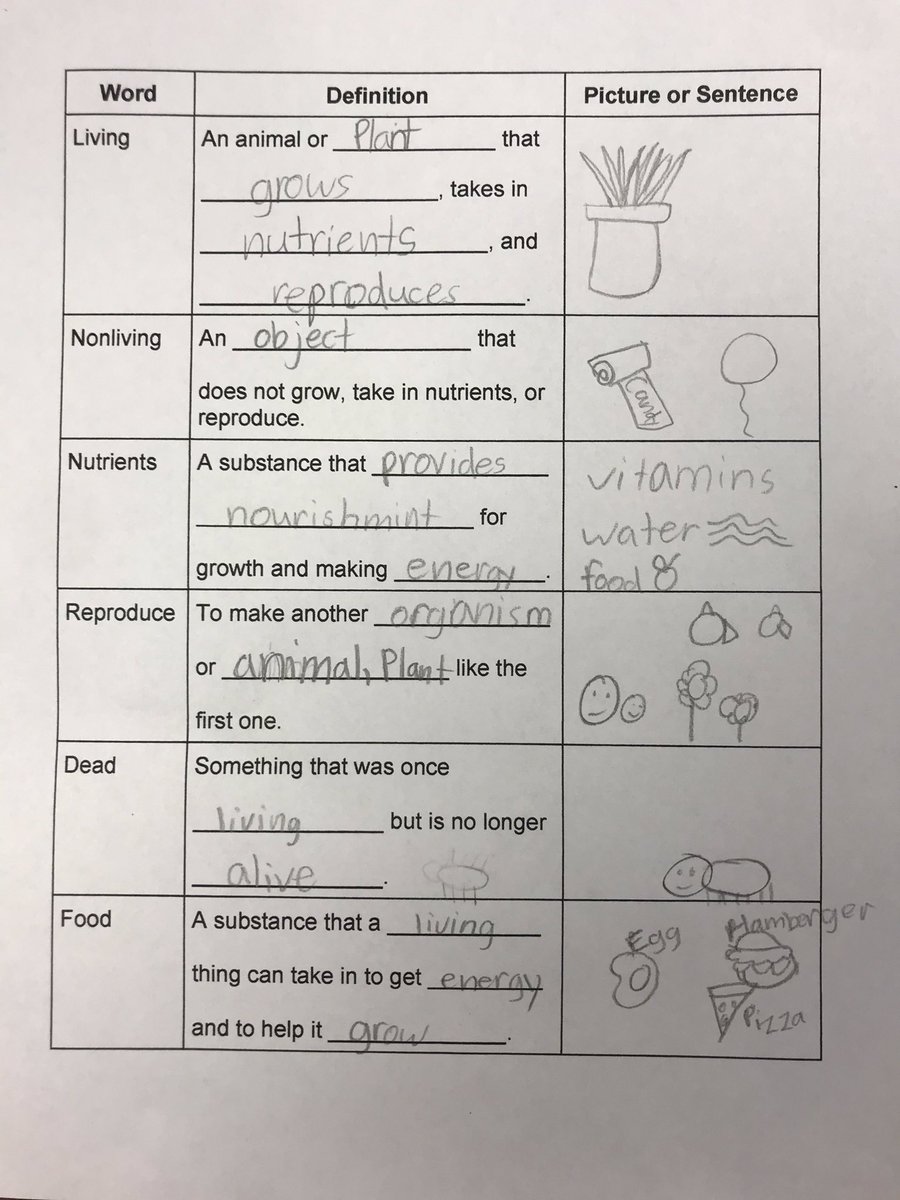 Word Definition Picture or Sentence
Living An animal or Plant that
grows, takes in
nutrients, and
reproduces.
Nonliving An object that
does not grow, take in nutrients, or
reproduce.
Candy
Nutrients A substance that provides
nourishmint for
growth and making energy.
vitamins
water
food
Reproduce To make another organism
or animal, Plant like the
first one.
Dead Something that was once
living but is no longer
alive.
Food A substance that a living
thing can take in to get energy
and to help it grow.
Egg Hamborger
Pizza